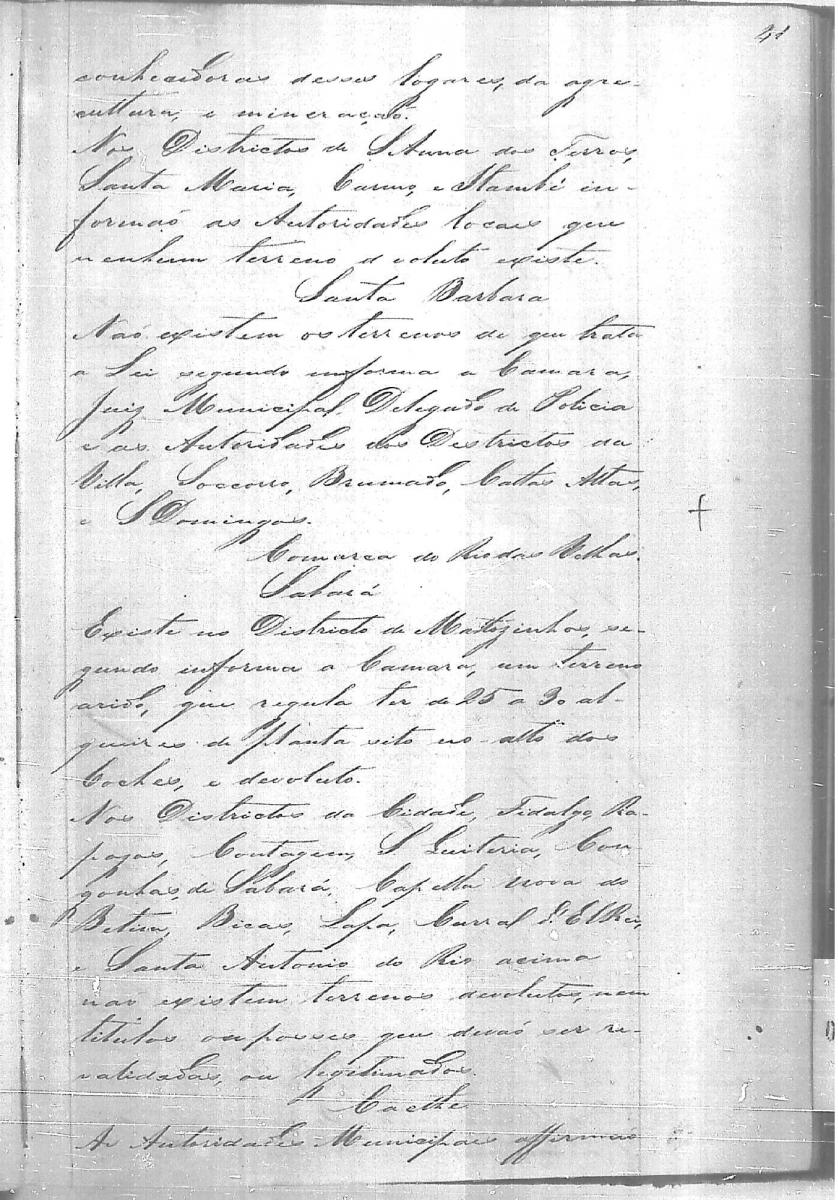 41
conhecedoras desses logares, da agri-
cultura, e mineração.
Nos Districtos de S Anna dos Ferros,
Santa Maria, Carmo, e Itambé in-
formaõ as Autoridades locaes que
nenhum terreno devoluto existe.
Santa Barbara
Naõ existem os terrenos de que trata
a Lei segundo informa a Camara,
Juiz Municipal, Delegado de Policia
e as Autoridades dos Districtos da
Villa, Soccorro, Brumado, Cattas Altas,
e S Domingos.
Comarca do Rio das Velhas.
Sabará
Existe no Districto de Mattozinhos, se-
gundo informa a Camara, um terreno
arido, que regula ter de 25 a 30 al-
queires de planta sito no alto dos
Coches, e devoluto.
Nos Districtos da Cidade, Fidalgo, Ra-
posos, Contagem, S Quiteria, Con-
gonhas, de Sabará, Capella nova do
Betim, Bicas, Lapa, Curral d'El Rei,
e Santo Antonio do Rio acima
naõ existem terrenos devolutos, nem
titulos ou posses que devaõ ser re-
validadas, ou legitimados.
Caethe
As Autoridades Municipaes affirmaõ